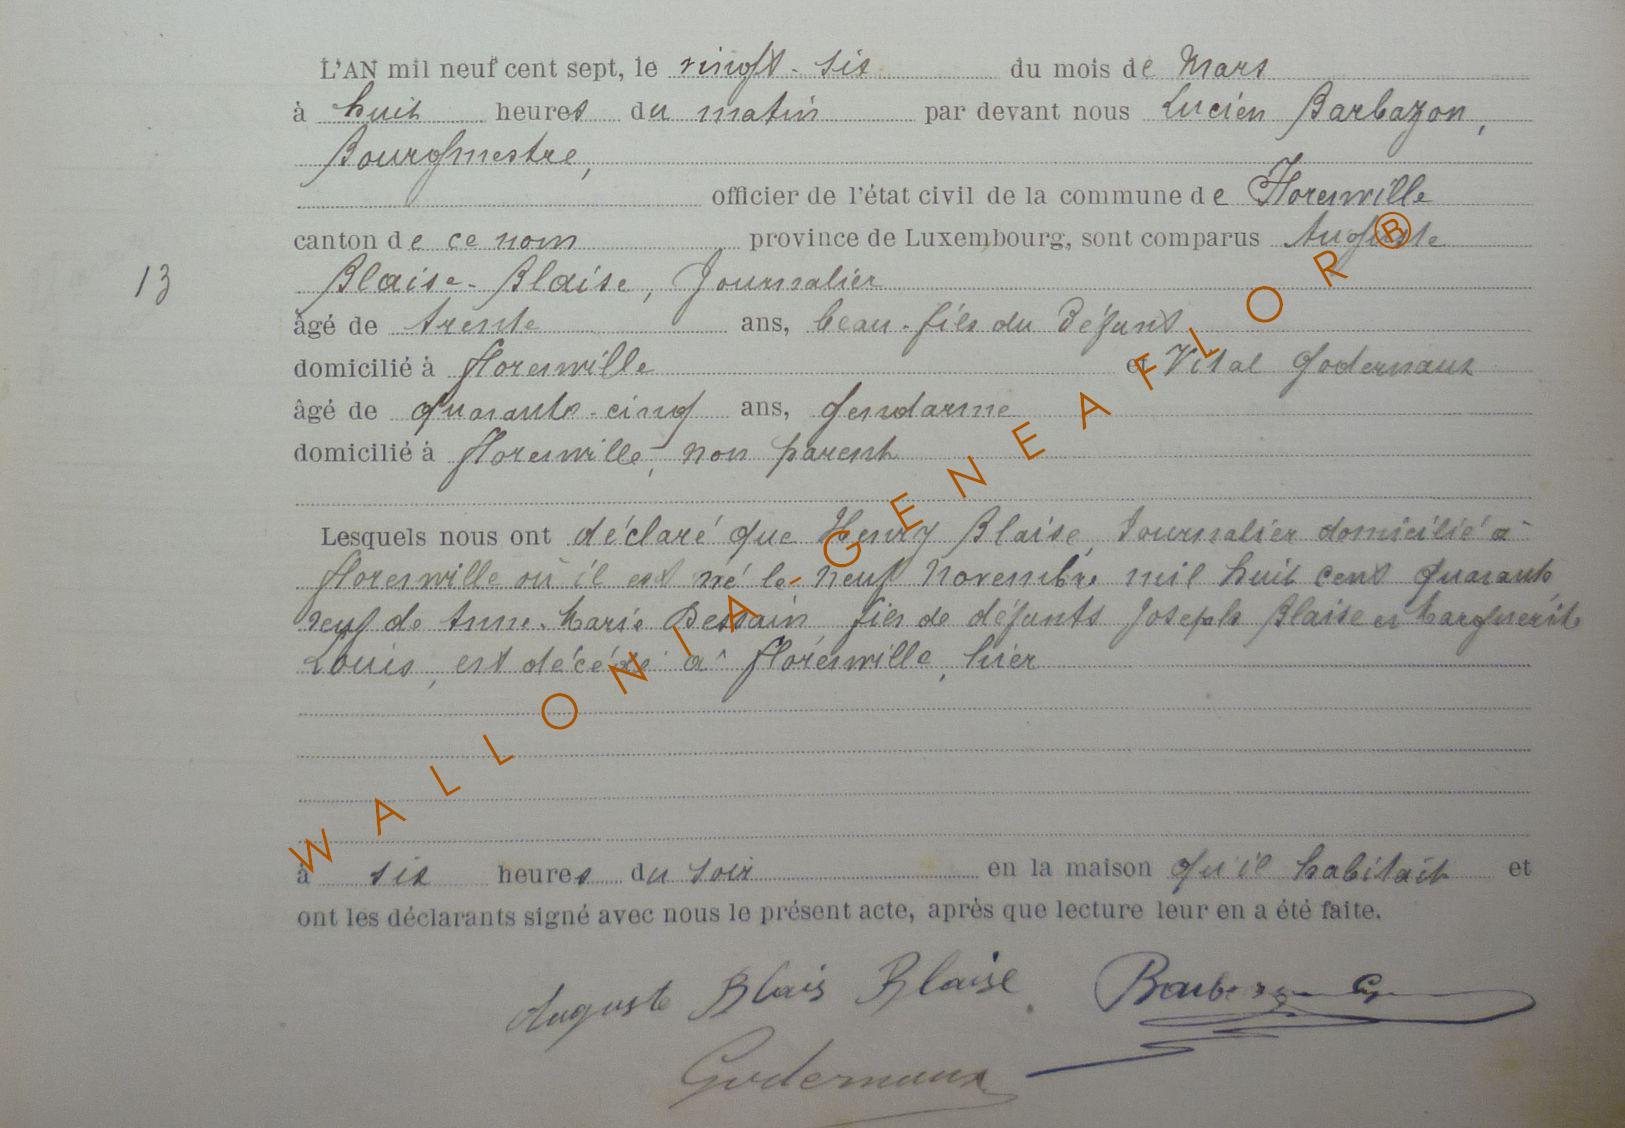 L'AN mil neuf cent sept, le vingt-six du mois de Mars
à huit heures du matin par devant nous Lucien Barbazon,
Bourgmestre,
officier de l'état civil de la commune de Florenville
canton de ce nom province de Luxembourg, sont comparus Auguste
13
Blaise-Blaise, Journalier
âgé de trente ans, beau-fils du Défunt
domicilié à Florenville et Vital Godernaux
âgé de quarante-cinq ans, gendarme
domicilié à Florenville, non parent
Lesquels nous ont déclaré que Henry Blaise, Journalier domicilié à
Florenville où il est né le neuf Novembre mil huit cent quarante
neuf de Anne-Marie Dessain fils de défunts Joseph Blaise et Marguerite
Louis, est décédé à Florenville, hier
à six heures du soir en la maison qu'il habitait et
ont les déclarants signé avec nous le présent acte, après que lecture leur en a été faite.
Auguste Blais Blaise
Godernaux
WALLONIA-GENEAFLOR®